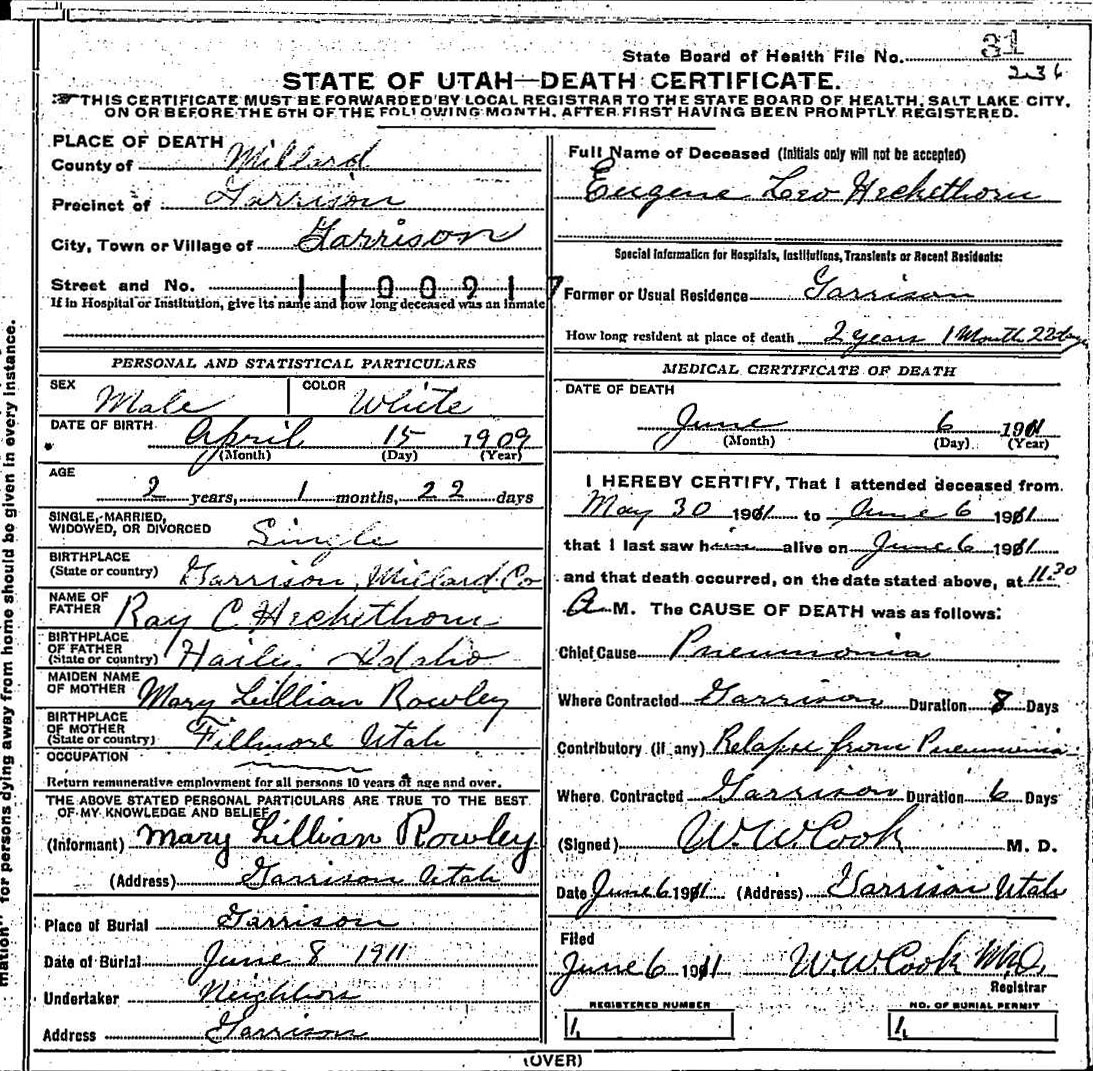 State Board of Health File No. 31
236
STATE OF UTAH—DEATH CERTIFICATE.
THIS CERTIFICATE MUST BE FORWARDED BY LOCAL REGISTRAR TO THE STATE BOARD OF HEALTH, SALT LAKE CITY,
ON OR BEFORE THE 5TH OF THE FOLLOWING MONTH, AFTER FIRST HAVING BEEN PROMPTLY REGISTERED.
PLACE OF DEATH
County of Millard
Precinct of Garrison
City, Town or Village of Garrison
Street and No. 1100217
If in Hospital or Institution, give its name and how long deceased was an inmate
PERSONAL AND STATISTICAL PARTICULARS
SEX Male COLOR White
DATE OF BIRTH April 15 1909
(Month) (Day) (Year)
AGE
2 years, 1 months, 22 days
SINGLE, MARRIED,
WIDOWED, OR DIVORCED Single
BIRTHPLACE
(State or country) Garrison, Millard Co
NAME OF
FATHER Ray C Heckethorn
BIRTHPLACE
OF FATHER
(State or country) Hailey Idaho
MAIDEN NAME
OF MOTHER Mary Lillian Rowley
BIRTHPLACE
OF MOTHER
(State or country) Fillmore Utah
OCCUPATION
Return remunerative employment for all persons 10 years of age and over.
THE ABOVE STATED PERSONAL PARTICULARS ARE TRUE TO THE BEST
OF MY KNOWLEDGE AND BELIEF
(Informant) Mary Lillian Rowley
(Address) Garrison Utah
Place of Burial Garrison
Date of Burial June 8 1911
Undertaker Neighbors
Address Garrison
Full Name of Deceased (Initials only will not be accepted)
Eugene Leo Heckethorn
Special Information for Hospitals, Institutions, Transients or Recent Residents:
Former or Usual Residence Garrison
How long resident at place of death 2 years 1 Month 22 days
MEDICAL CERTIFICATE OF DEATH
DATE OF DEATH
June 6 1911
(Month) (Day) (Year)
I HEREBY CERTIFY, That I attended deceased from
May 30 1911 to June 6 1911
that I last saw him alive on June 6 1911
and that death occurred, on the date stated above, at 11.30
A M. The CAUSE OF DEATH was as follows:
Chief Cause Pneumonia
Where Contracted Garrison Duration 8 Days
Contributory (if any) Relapse from Pneumonia
Where Contracted Garrison Duration 6 Days
(Signed) W. W. Cook M. D.
Date June 6 1911 (Address) Garrison Utah
Filed
June 6 1911 W. W. Cook M.D.
Registrar
REGISTERED NUMBER NO. OF BURIAL PERMIT
1 1
(OVER)
mation" for persons dying away from home should be given in every instance.